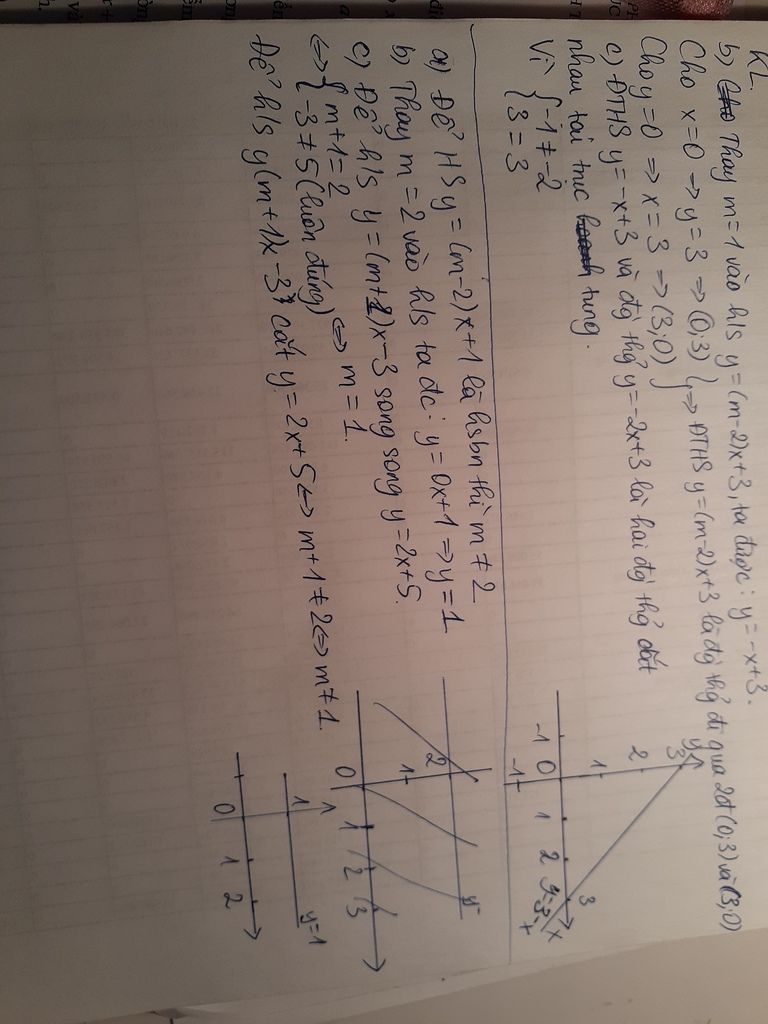 KL.
b) Thay m = 1 vào h/s y = (m-2)x+3, ta được: y = -x+3.
Cho x=0 => y = 3 => (0;3)
Cho y=0 => x = 3 => (3;0) } => ĐTHS y=(m-2)x+3 là đg thẳg đi qua 2đ (0;3) và (3;0)
c) ĐTHS y=-x+3 và đg thẳg y=-2x+3 là hai đg thẳg cắt
nhau tại trục tung.
Vì { -1 ≠ -2
3 = 3
y
3
2
1
-1 0 1 2 3
-1
x
y=3-x
a) Để HS y = (m-2)x+1 là hsbn thì m ≠ 2
b) Thay m = 2 vào h/s ta đc: y = 0x+1 => y = 1
c) Để h/s y = (m+1)x-3 song song y = 2x+5.
<=> { m+1 = 2
-3 ≠ 5 (luôn đúng) <=> m = 1.
Để h/s y(m+1)x-3 cắt y = 2x+5 <=> m+1 ≠ 2 <=> m ≠ 1.
2
1
0 1 2 3
y
1
y=1
0 1 2